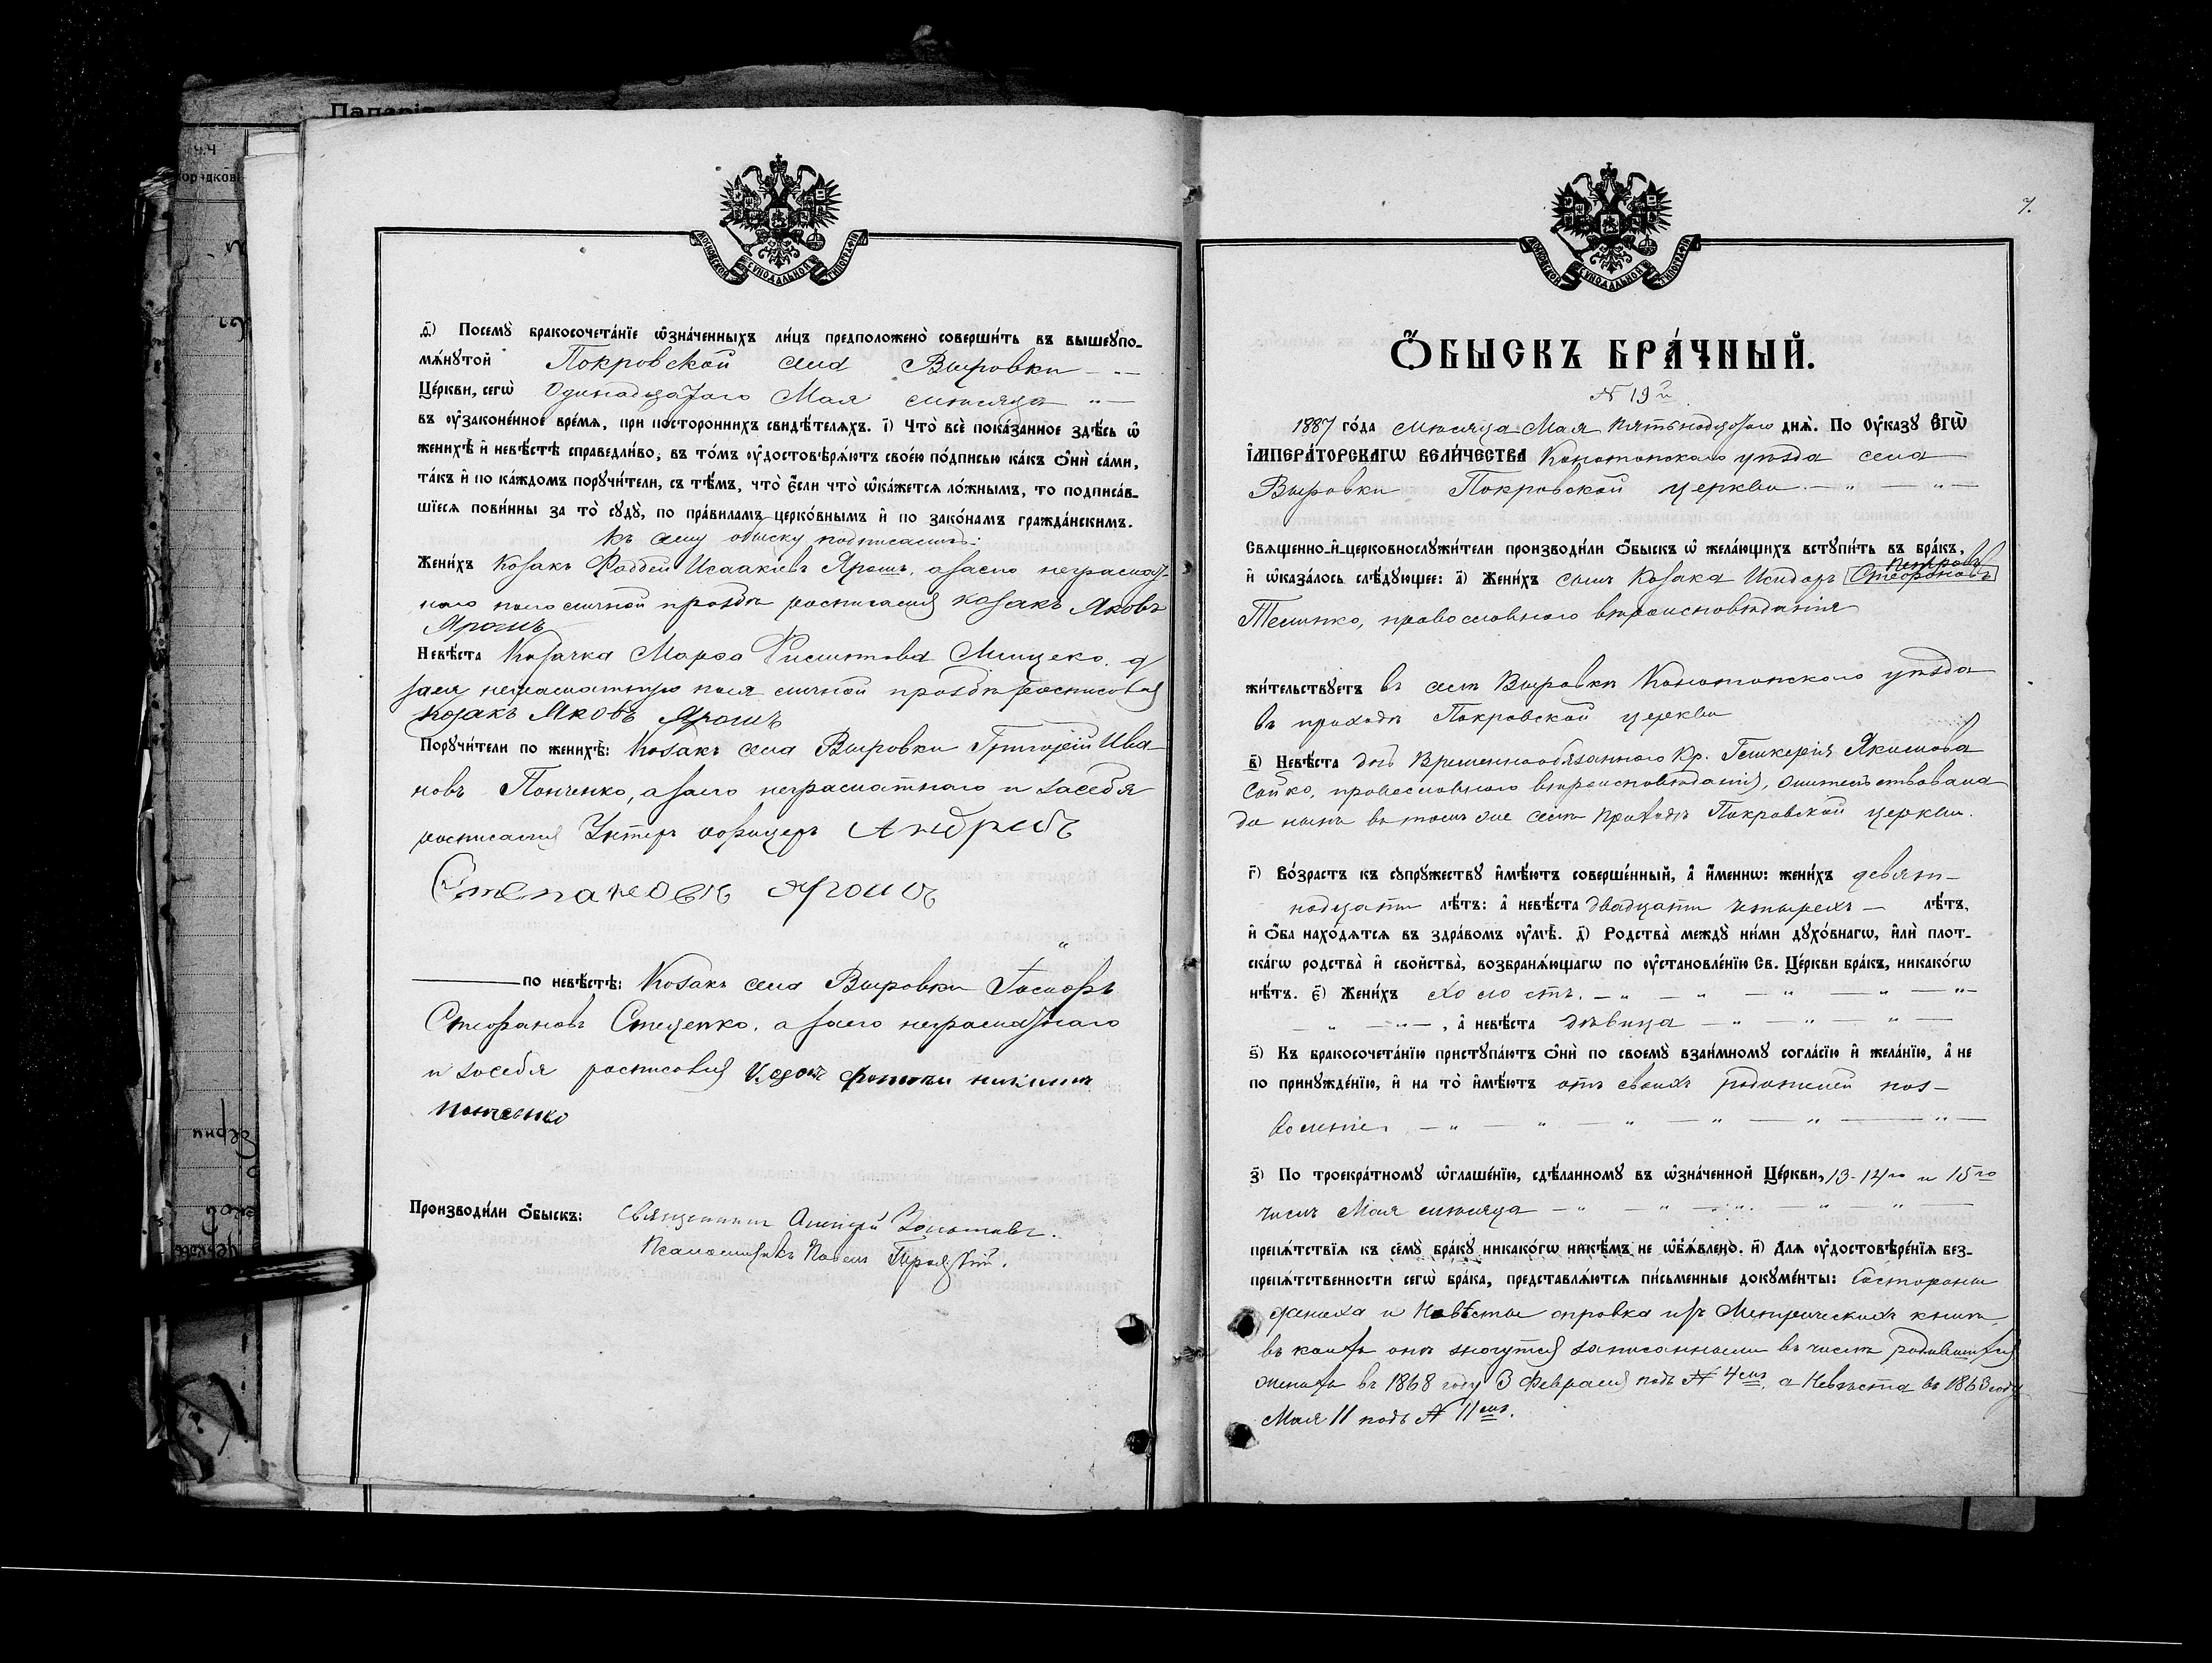 Паперів
МОСКОВСКОЙ СУНОДАЛЬНОЙ ТИПОГРАФІИ
д҃) Посемꙋ̀ бракосочета́нїе ѿзна́ченныхъ ли́цъ предположено̀ соверши́ть въ вышеꙋпо-
мѧ́нꙋтой Покровской села Выровки
Це́ркви, сегѡ̀ Одинадцатого Мая месяца
въ ᲂу҆законе́нное вре́мѧ, при посторо́ннихъ свидѣ́телѧхъ. і҃) Что̀ всѐ пока́занное здѣ́сь ѡ҆
женихѣ̀ и҆ невѣ́стѣ справедли́во; въ то́мъ ᲂу҆достовѣрѧ́ютъ свое́ю по́дписью ка́къ ѻ҆нѝ са́ми,
та́къ и҆ по ка́ждомъ порꙋчи́тели, съ тѣ́мъ, что̀ є҆́сли что̀ ѡ҆ка́жетсѧ ло́жнымъ, то подписа́в-
шїесѧ пови́нны за то̀ сꙋдꙋ̀, по пра́виламъ церко́внымъ и҆ по зако́намъ гражда́нскимъ.
Къ сему обыску подписались:
Жени́хъ Козакъ Фаддей Исаакіевъ Ярошъ, а засно неграмот-
ного по его личной прозьбе росписался козакъ Яковъ
Ярошъ
Невѣ́ста Козачка Марфа
козакъ Яковъ Ярошъ
Порꙋчи́тели по женихѣ̀: Козакъ села Выровки Григорій Ива-
новъ Панченко, а заего неграмотного и засебя
росписался Унтеръ офицеръ Андрей
Степановъ Ярошъ
по невѣ́стѣ: Козакъ села Выровки
Стефановъ Стеценко, а заего неграмотного
и засебя росписовся
Панченко
Производи́ли ѻ҆́быскъ: Священникъ Алексѣй
Псаломщикъ Павелъ
7.
МОСКОВСКОЙ СУНОДАЛЬНОЙ ТИПОГРАФІИ
Ѻ҆́БЫСКЪ БРА́ЧНЫЙ.
№ 19й
1887 го́да месяца Мая пятьнадцатого днѧ̀. По ᲂу҆ка́зꙋ Є҆ГѠ̀
І҆МПЕРА́ТОРСКАГѠ ВЕЛИ́ЧЕСТВА Конотопского уезда села
Выровки Покровской церкви.
Свѧще́нно-и҆-церковнослꙋжи́тели производи́ли ѻ҆́быскъ ѡ҆ жела́ющихъ встꙋпи́ть въ бра́къ,
и҆ ѡ҆каза́лось слѣ́дꙋющее: а҃) Жени́хъ сынъ Козака Исидоръ Стефановъ Петровъ
православного вероисповеданія
жи́тельствꙋетъ въ селе Выровке Конотопского уезда
въ приходе Покровской церкви
в҃) Невѣ́ста дочь Временнообязанного Кр. Гликерія Якимова
Сайко, православного вероисповеданія, жительствовала
до ныне въ томъ же селе приходе Покровской церкви.
г҃) Во́зрастъ къ сꙋпрꙋ́жествꙋ и҆мѣ́ютъ соверше́нный, а҆ и҆́меннѡ: жени́хъ девят-
надцати лѣ́тъ: а҆ невѣ́ста двадцати четырехъ лѣ́тъ,
и҆ ѻ҆́ба нахо́дѧтсѧ въ здра́вомъ ᲂу҆мѣ̀. д҃) Родства̀ междꙋ̀ ни́ми дꙋхо́внагѡ, и҆лѝ плот-
ска́гѡ родства̀ и҆ сво́йства̀, возбранѧ́ющагѡ по ᲂу҆становле́нїю Св. Це́ркви бра́къ, никако́гѡ
нѣ́тъ. є҃) Жени́хъ холостъ.
, а҆ невѣ́ста девица
ѕ҃) Къ бракосочета́нїю пристꙋпа́ютъ ѻ҆нѝ по своемꙋ̀ взаи́мномꙋ согла́сїю и҆ жела́нїю, а҆ не
по принꙋжде́нїю, и҆ на то̀ и҆мѣ́ютъ отъ своихъ родителей поз-
воленіе
з҃) По троекра́тномꙋ ѡ҆глаше́нїю, сдѣ́ланномꙋ въ ѿзна́ченной Це́ркви, 13-14го и 15го
числъ Мая месяца
препѧ́тствїѧ къ семꙋ̀ бра́кꙋ никако́гѡ никѣ́мъ не ѡ҆б̾ѧ́влено. и҃) Длѧ ᲂу҆достовѣре́нїѧ без-
препѧ́тственности сегѡ̀ бра́ка, представлѧ́ютсѧ пи́сьменные докꙋме́нты: Состороны
жениха и Невѣсты справка изъ Метрическихъ книгъ,
въ коихъ они значутся записанными въ числе родившихся
женихъ въ 1868 году 3 Февраля подъ № 4емъ, а Невеста въ 1863 году
Мая 11 подъ № 11емъ.